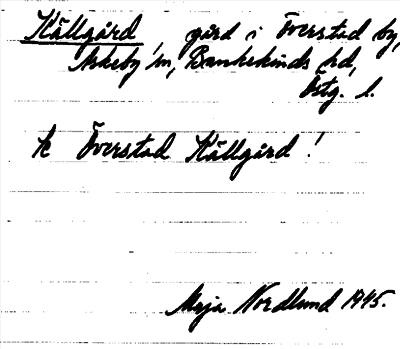 Källgård gård i Överstad by,
Askeby sn, Bankekinds hd,
Östg. l.
k Överstad Källgård!
Maja Nordlund 1945.